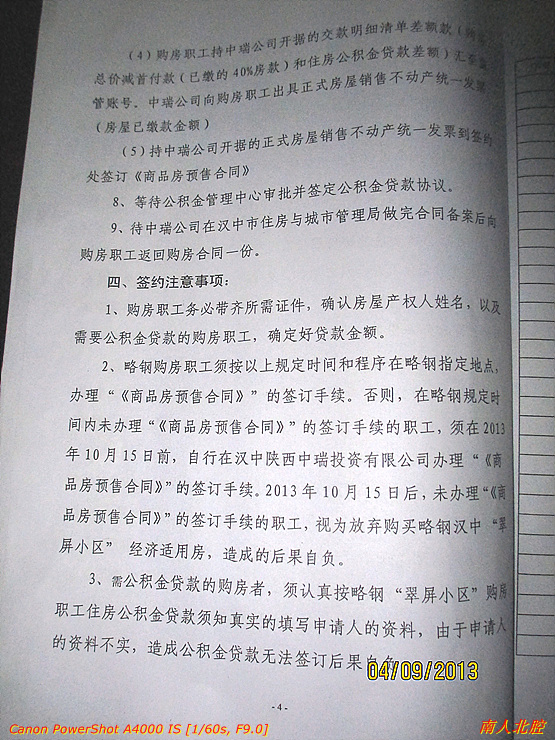 （4）购房职工持中瑞公司开据的交款明细清单差额款（
总价减首付款（已缴的40%房款）和住房公积金贷款差额）汇
管账号。中瑞公司向购房职工出具正式房屋销售不动产统一发票
（房屋已缴款金额）
（5）持中瑞公司开据的正式房屋销售不动产统一发票到签约
处签订《商品房预售合同》
8、等待公积金管理中心审批并签定公积金贷款协议。
9、待中瑞公司在汉中市住房与城市管理局做完合同备案后向
购房职工返回购房合同一份。
四、签约注意事项：
1、购房职工务必带齐所需证件，确认房屋产权人姓名，以及
需要公积金贷款的购房职工，确定好贷款金额。
2、略钢购房职工须按以上规定时间和程序在略钢指定地点，
办理“《商品房预售合同》”的签订手续。否则，在略钢规定时
间内未办理“《商品房预售合同》”的签订手续的职工，须在2013
年10月15日前，自行在汉中陕西中瑞投资有限公司办理“《商
品房预售合同》”的签订手续。2013年10月15日后，未办理“《商
品房预售合同》”的签订手续的职工，视为放弃购买略钢汉中“翠
屏小区” 经济适用房，造成的后果自负。
3、需公积金贷款的购房者，须认真按略钢“翠屏小区”购房
职工住房公积金贷款须知真实的填写申请人的资料，由于申请人
的资料不实，造成公积金贷款无法签订后果自负
04/09/2013
-4-
Canon PowerShot A4000 IS [1/60s, F9.0]
南人北腔